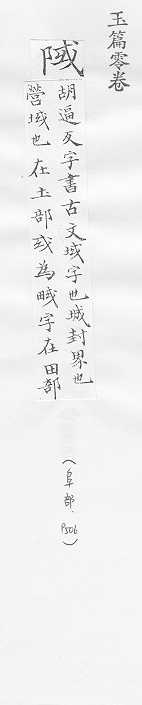 玉篇零卷
䧕
胡逼反字書古文域字也域封界也
營域也在土部或為𤲬字在田部
(阜部, P506)